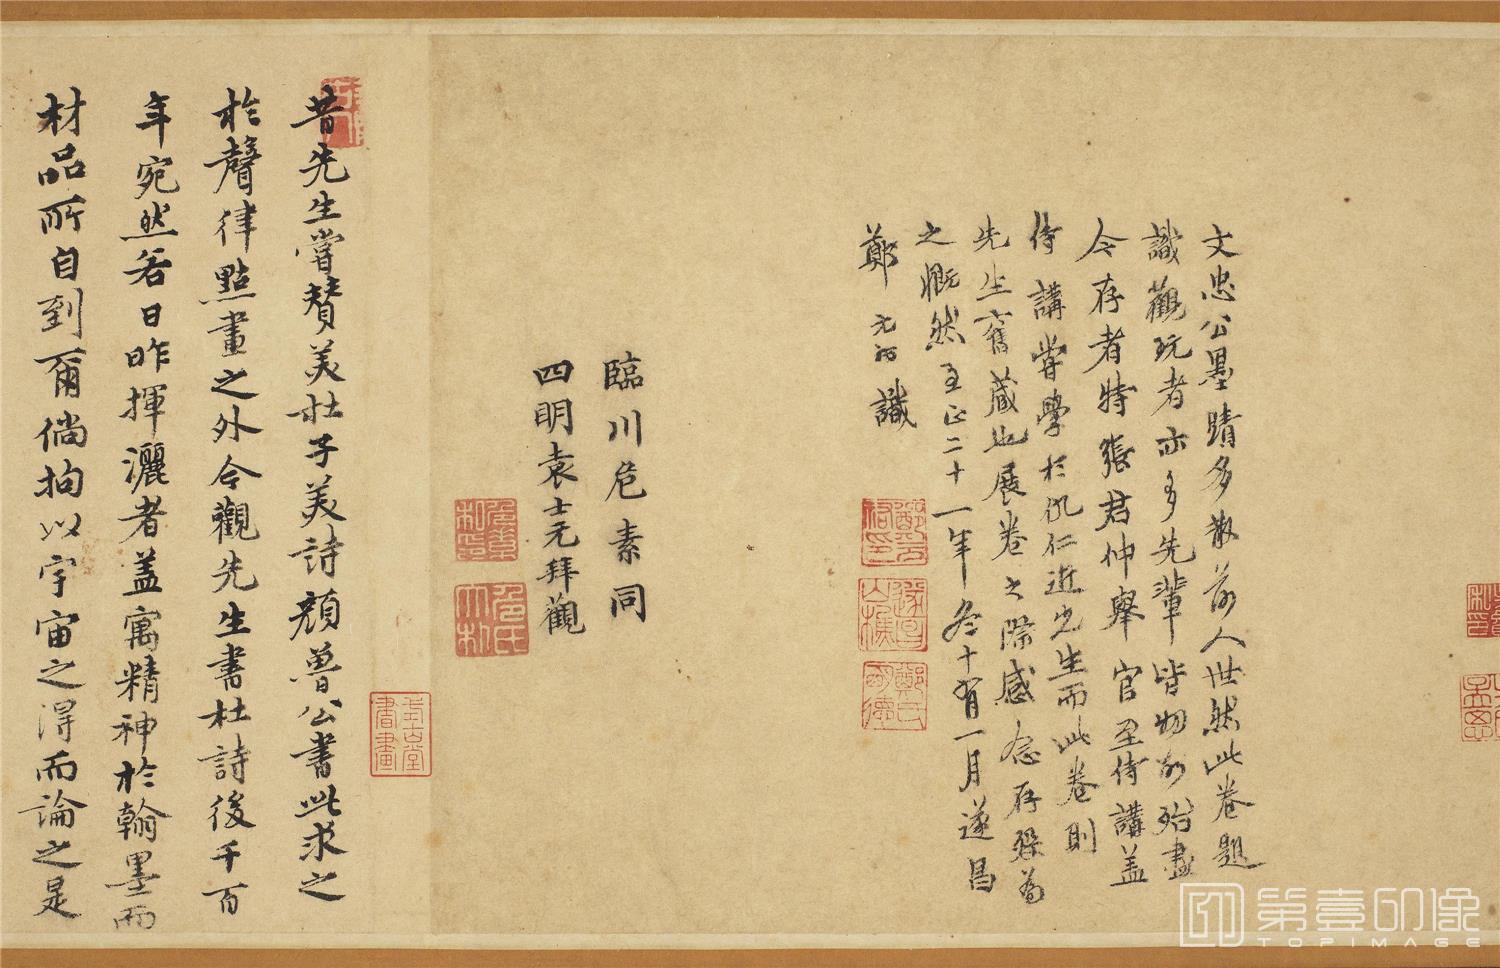 文忠公墨蹟多散落人世然此卷題
識觀玩者亦多先輩皆物故殆盡
今存者特張君仲舉官至侍講蓋
侍講嘗學於仇仁近先生而此卷則
先生舊藏也展卷之際感念存歿為
之慨然至正二十一年冬十有一月遂昌
鄭元祐識
臨川危素同
四明袁士元拜觀
昔先生嘗賛美杜子美詩顔魯公書此求之
於聲律點畫之外今觀先生書杜詩後千百
年宛然若日昨揮灑者盖寓精神於翰墨而
材品所自到爾倘拘以宇宙之得而論之是
第壹印像
TOPIMAGE